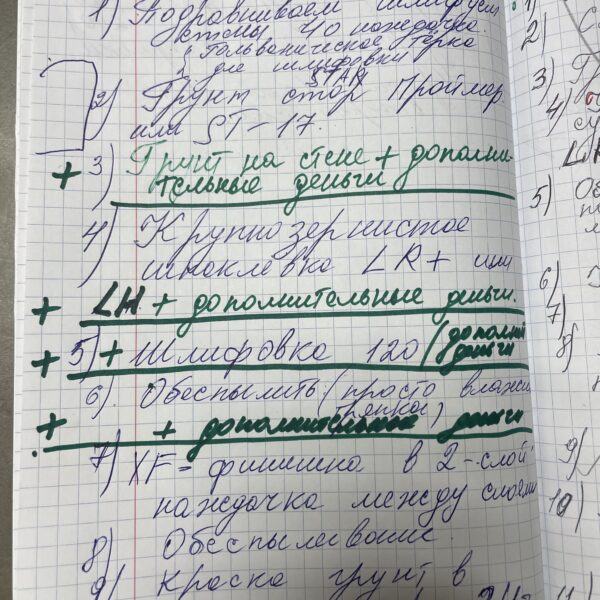 1) Подравниваем шлифуем
стены 40 наждачка.
Гальваническое тёрка
для шлифовки
STAR
2) Грунт стор Проймер
или ST-17.
+ 3) Грунт на стене + дополни-
тельные деньги
4) Крупнозернистое
шпаклевка LR+ или
+ LH + дополнительные деньги.
+ 5) + Шлифовка 120 (дополни
деньги
6) Обеспылить (просто влажн
тряпкой)
+ + дополнительные деньги
7) XF = финишка в 2-слой
наждачка между слоями
8) Обеспыливание.
9) Краска грунт в
1)
2)
3)
4)
5)
6)
7)
8)
9)
10)